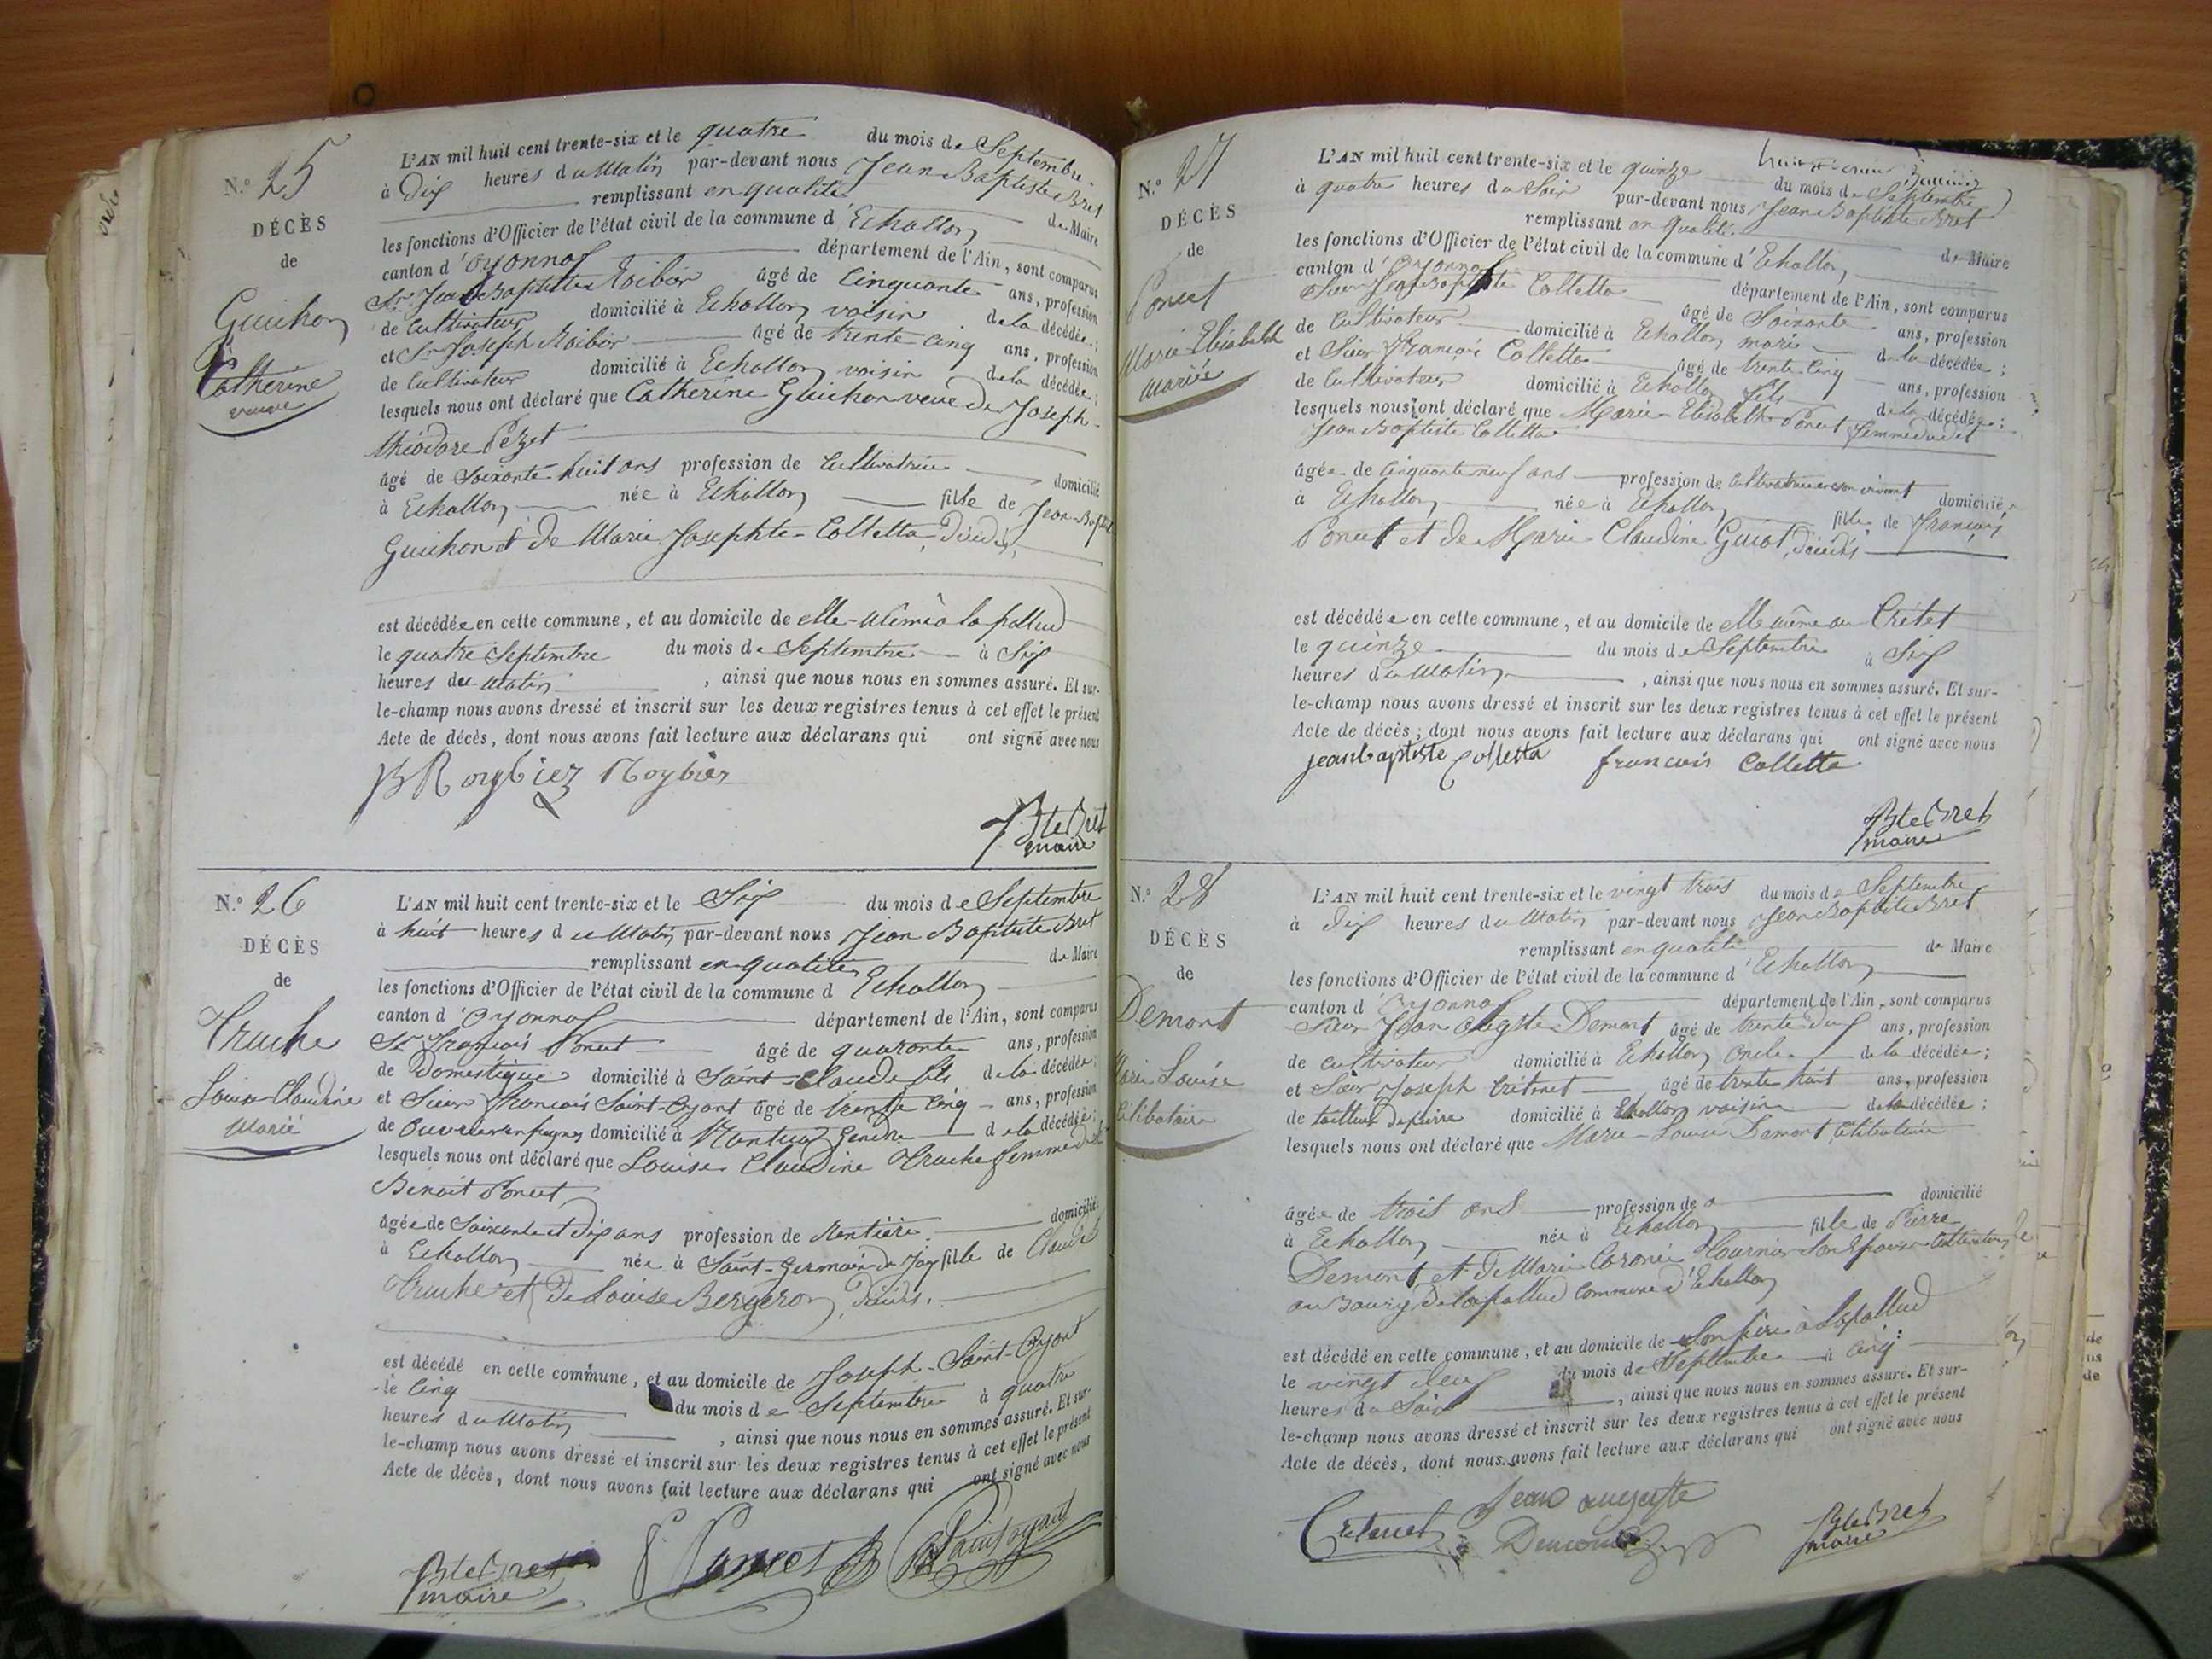 N.º 25
DÉCÈS
de
Guichon
Catherine
veuve
L'AN mil huit cent trente-six et le quatre du mois de Septembre
à Dix heures du Matin par-devant nous Jean Baptiste Bret
remplissant en qualité de Maire
les fonctions d'Officier de l'état civil de la commune d'Echallon
canton d'Oyonnax département de l'Ain, sont comparus
Sr. Jean Baptiste Roibier âgé de Cinquante ans, profession
de Cultivateur domicilié à Echallon voisin de la décédée;
et Sr Joseph Roibier âgé de trente cinq ans, profession
de Cultivateur domicilié à Echallon voisin de la décédée;
lesquels nous ont déclaré que Catherine Guichon veuve de Joseph
théodore Pézet
âgé de Soixante huit ans profession de Cultivatrice domicilié
à Echallon née à Echallon fille de Jean-Baptiste
Guichon et de Marie Josephte Colletta, Décédés,
est décédée en cette commune, et au domicile de elle-même à la pallud
le quatre Septembre du mois de Septembre à Six
heures du Matin, ainsi que nous nous en sommes assuré. Et sur-
le-champ nous avons dressé et inscrit sur les deux registres tenus à cet effet le présent
Acte de décès, dont nous avons fait lecture aux déclarans qui ont signé avec nous
Roybier
JBte Bret
maire
N.º 26
DÉCÈS
de
Truche
Louise Claudine
Marié
L'AN mil huit cent trente-six et le Six du mois de Septembre
à huit heures du Matin par-devant nous Jean Baptiste Bret
remplissant en qualité de Maire
les fonctions d'Officier de l'état civil de la commune d Echallon
canton d'Oyonnax département de l'Ain, sont comparus
Sr François Poncet âgé de quarante ans, profession
de Domestique domicilié à Saint-Claude fils de la décédée;
et Sieur François Saint-Oyant âgé de trente cinq ans, profession
de domicilié à Nantua Gendre de la décédée;
lesquels nous ont déclaré que Louise Claudine Truche femme de
Benoit Poncet
âgée de Soixante et dix ans profession de Rentière domicilié
à Echallon née à Saint-Germain de Joux fille de Claude
Truche et De Louise Bergeron, Décédés.
est décédé en cette commune, et au domicile de Joseph-Saint-Oyant
le Cinq du mois de Septembre à quatre
heures du Matin, ainsi que nous nous en sommes assuré. Et sur-
le-champ nous avons dressé et inscrit sur les deux registres tenus à cet effet le présent
Acte de décès, dont nous avons fait lecture aux déclarans qui ont signé avec nous
JBte Bret
maire
Poncet
Saintoyant
N.º 27
DÉCÈS
de
Poncet
Marie Elisabeth
Mariée
L'AN mil huit cent trente-six et le quinze du mois de Septembre
à quatre heures du Soir par-devant nous Jean Baptiste Bret
remplissant en qualité de Maire
les fonctions d'Officier de l'état civil de la commune d'Echallon,
canton d'Oyonnax département de l'Ain, sont comparus
Sieur Jean Baptiste Colletta âgé de Soixante ans, profession
de Cultivateur domicilié à Echallon mari de la décédée;
et Sieur François Colletta âgé de trente Cinq ans, profession
de Cultivateur domicilié à Echallon fils de la décédée;
lesquels nous ont déclaré que Marie Elisabeth Poncet femme dudit
Jean Baptiste Colletta
âgée de Cinquante neuf ans profession de Cultivatrice en son vivant domicilié
à Echallon née à Echallon fille de François
Poncet et de Marie Claudine Guiot, Décédés
est décédée en cette commune, et au domicile de elle même au Crétet
le quinze du mois de Septembre à Six
heures du Matin, ainsi que nous nous en sommes assuré. Et sur-
le-champ nous avons dressé et inscrit sur les deux registres tenus à cet effet le présent
Acte de décès; dont nous avons fait lecture aux déclarans qui ont signé avec nous
jeanbaptiste Colletta francois Colletta
JBte Bret
maire
N.º 28
DÉCÈS
de
Demont
Marie Louise
Célibataire
L'AN mil huit cent trente-six et le vingt trois du mois de Septembre
à Dix heures du Matin par-devant nous Jean Baptiste Bret
remplissant en qualité de Maire
les fonctions d'Officier de l'état civil de la commune d'Echallon
canton d'Oyonnax département de l'Ain, sont comparus
Sieur Jean Auguste Demont âgé de trente deux ans, profession
de cultivateur domicilié à Echallon oncle de la décédée;
et Sieur Joseph Crétenet âgé de trente huit ans, profession
de tailleur de pierre domicilié à Echallon voisin de la décédée;
lesquels nous ont déclaré que Marie-Louise Demont, Célibataire
âgée de trois ans profession de domicilié
à Echallon née à Echallon fille de Pierre
Demont et de Marie Tournier Son Epouse Cultivateurs
au Bourg De la pallud Commune d'Echallon
est décédé en cette commune, et au domicile de Son père à Lapallud
le vingt deux du mois de Septembre à Cinq
heures du Soir, ainsi que nous nous en sommes assuré. Et sur-
le-champ nous avons dressé et inscrit sur les deux registres tenus à cet effet le présent
Acte de décès, dont nous avons fait lecture aux déclarans qui ont signé avec nous
Cretenet Jean auguste
Demont
JBte Bret
maire